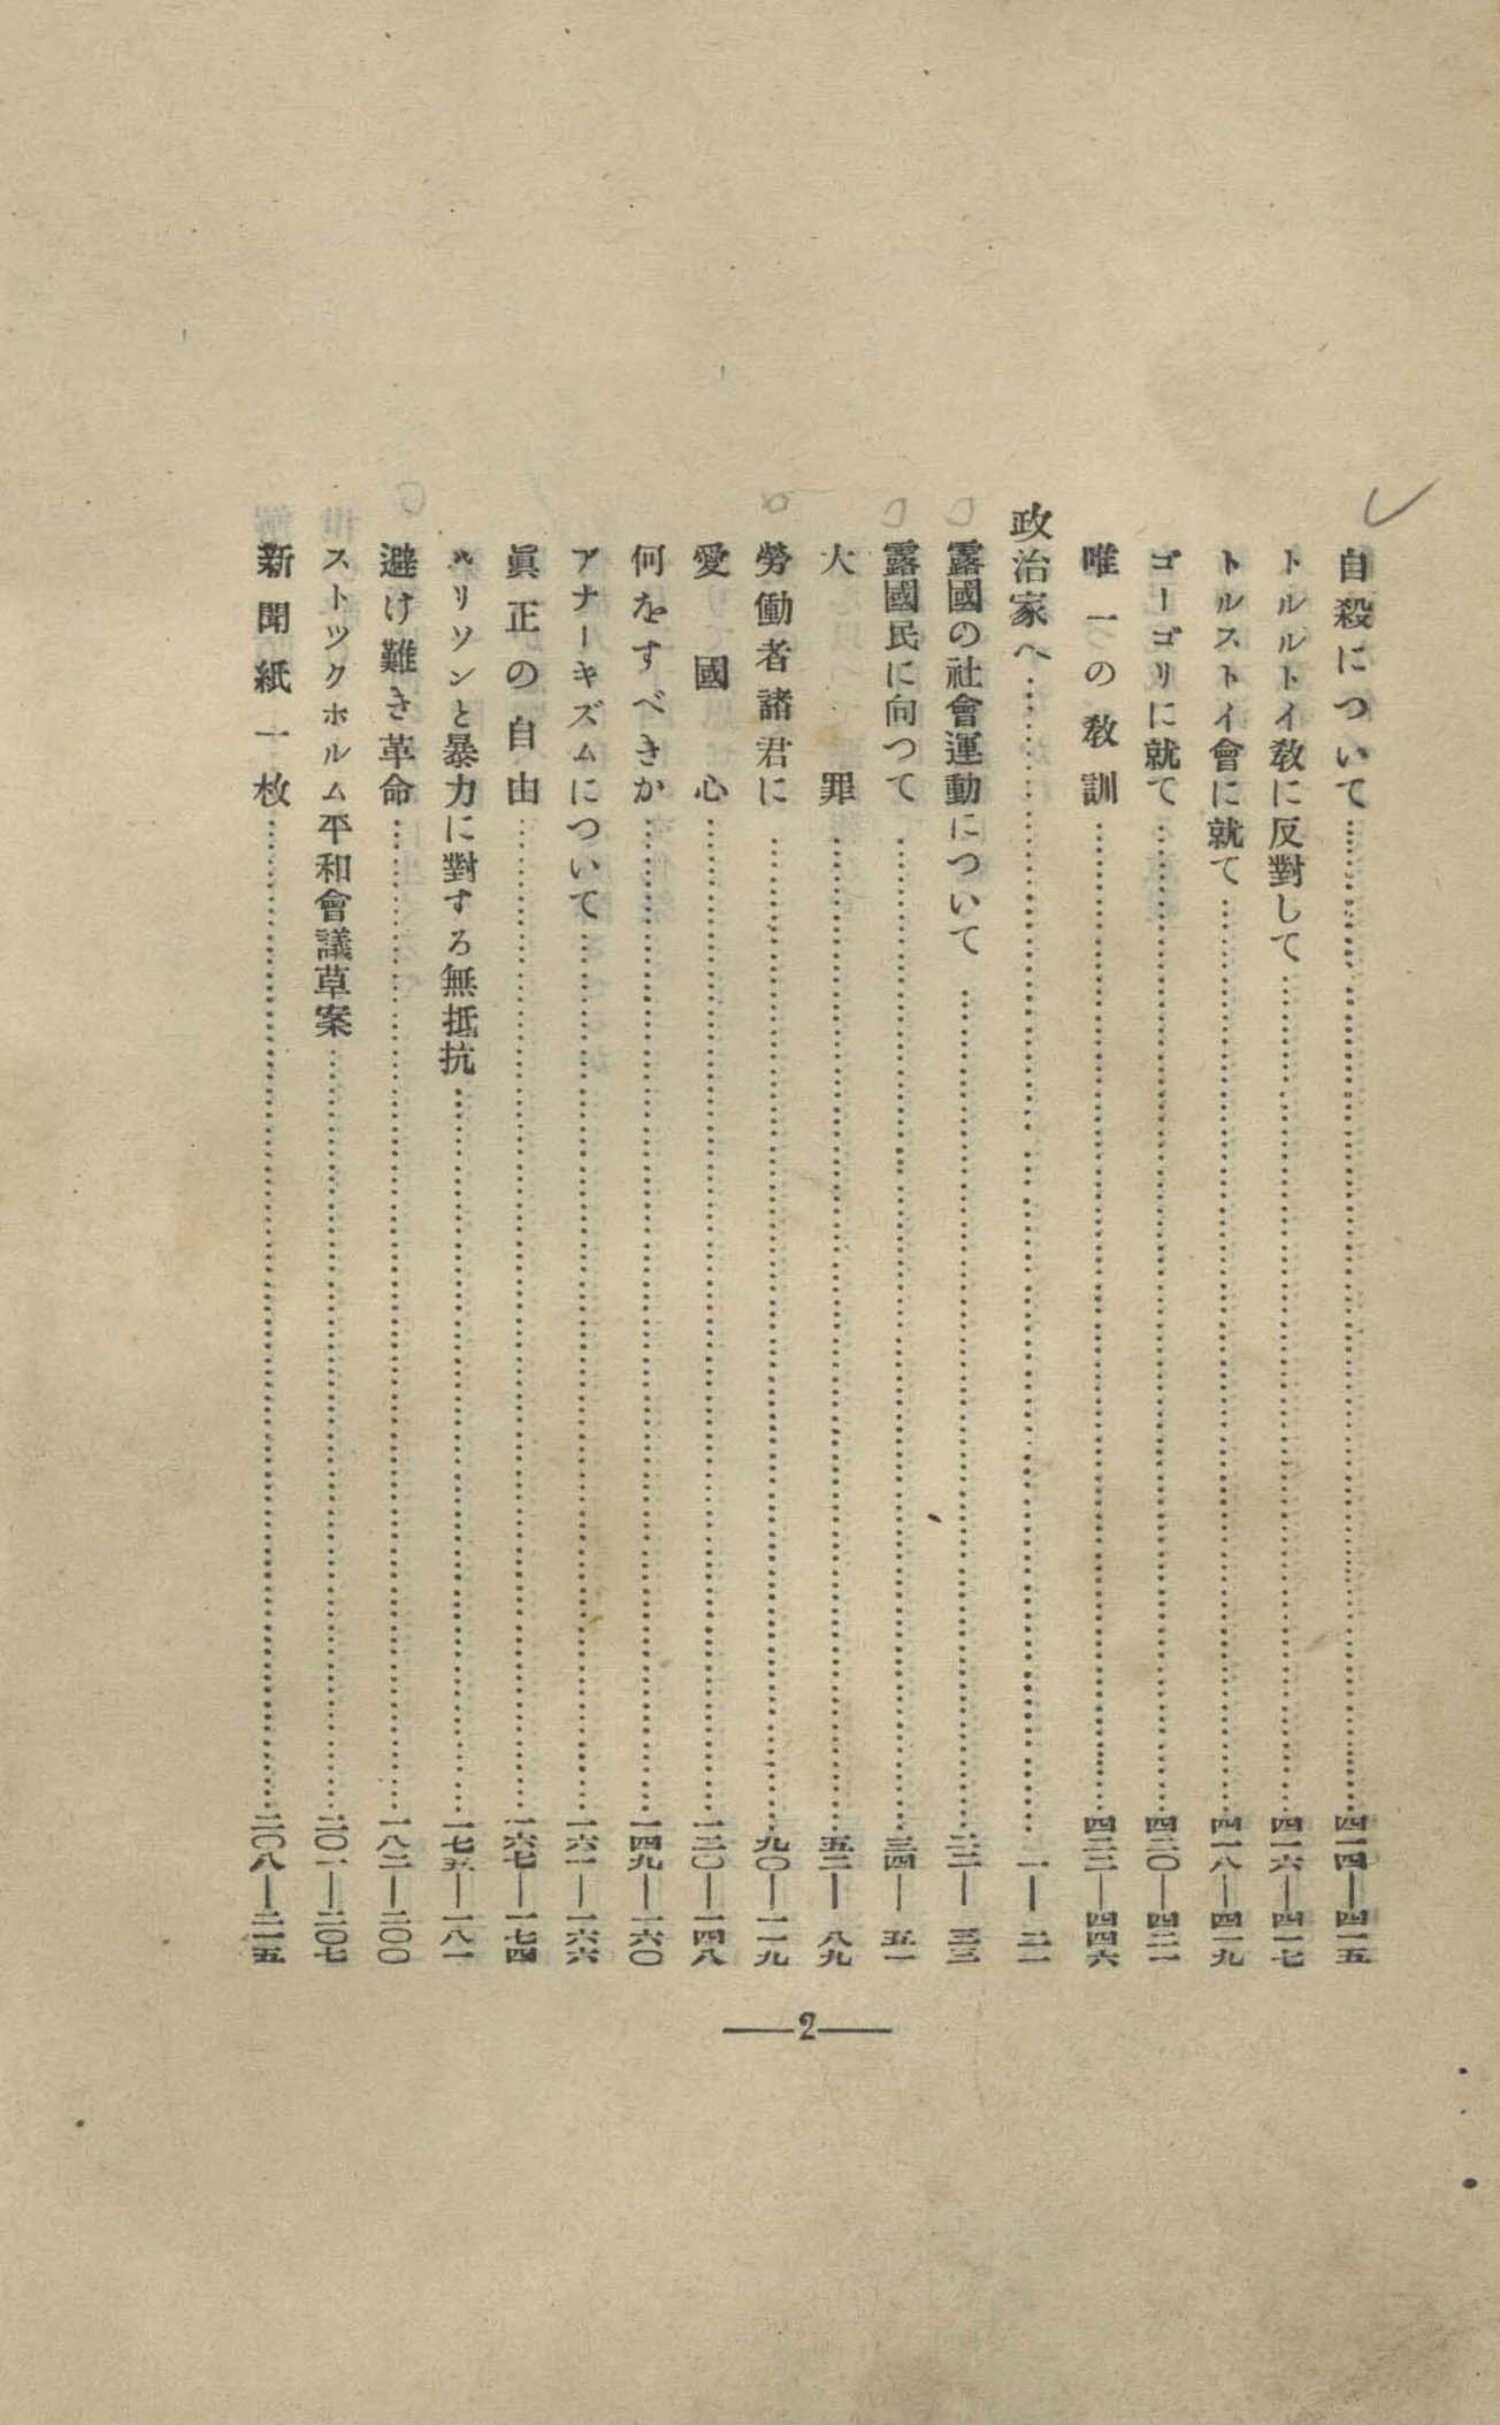 自殺について……四一四―四一五
トルルトイ教に反對して……四一六―四一七
トルストイ會に就て……四一八―四一九
ゴーゴリに就て……四二〇―四二一
唯一の教訓……四二二―四四六
政治家へ……一―二一
露國の社會運動について……二二―三三
露國民に向つて……三四―五一
大罪……五二―八九
勞働者諸君に……九〇―一一九
愛國心……一二〇―一四八
何をすべきか……一四九―一六〇
アナーキズムについて……一六一―一六六
眞正の自由……一六七―一七四
ハリソンと暴力に對する無抵抗……一七五―一八一
避け難き革命……一八二―二〇〇
ストツクホルム平和會議草案……二〇一―二〇七
新聞紙一枚……二〇八―二一五
―2―